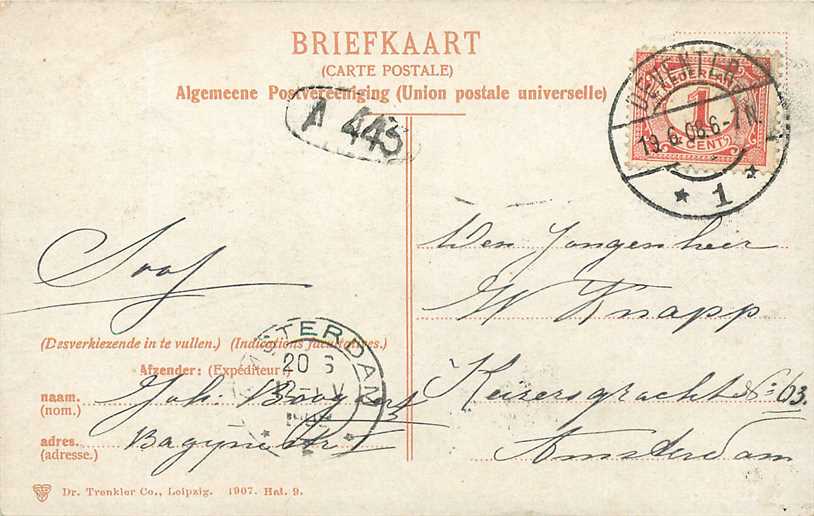 BRIEFKAART
(CARTE POSTALE)
Algemeene Postvereeniging (Union postale universelle)
A 443
DEVENTER
19.6.08.6-7N.
1
NEDERLAND
1
CENT
Den Jongenheer
W Knapp
Keizersgracht No 63.
Amsterdam
(Desverkiezende in te vullen.) (Indications facultatives.)
AMSTERDAM
20 6
Afzender: (Expéditeur)
naam. Joh. Boogaert
(nom.)
adres. Bagijnestr 1
(adresse.)
Dr. Trenkler Co., Leipzig. 1907. Hat. 9.